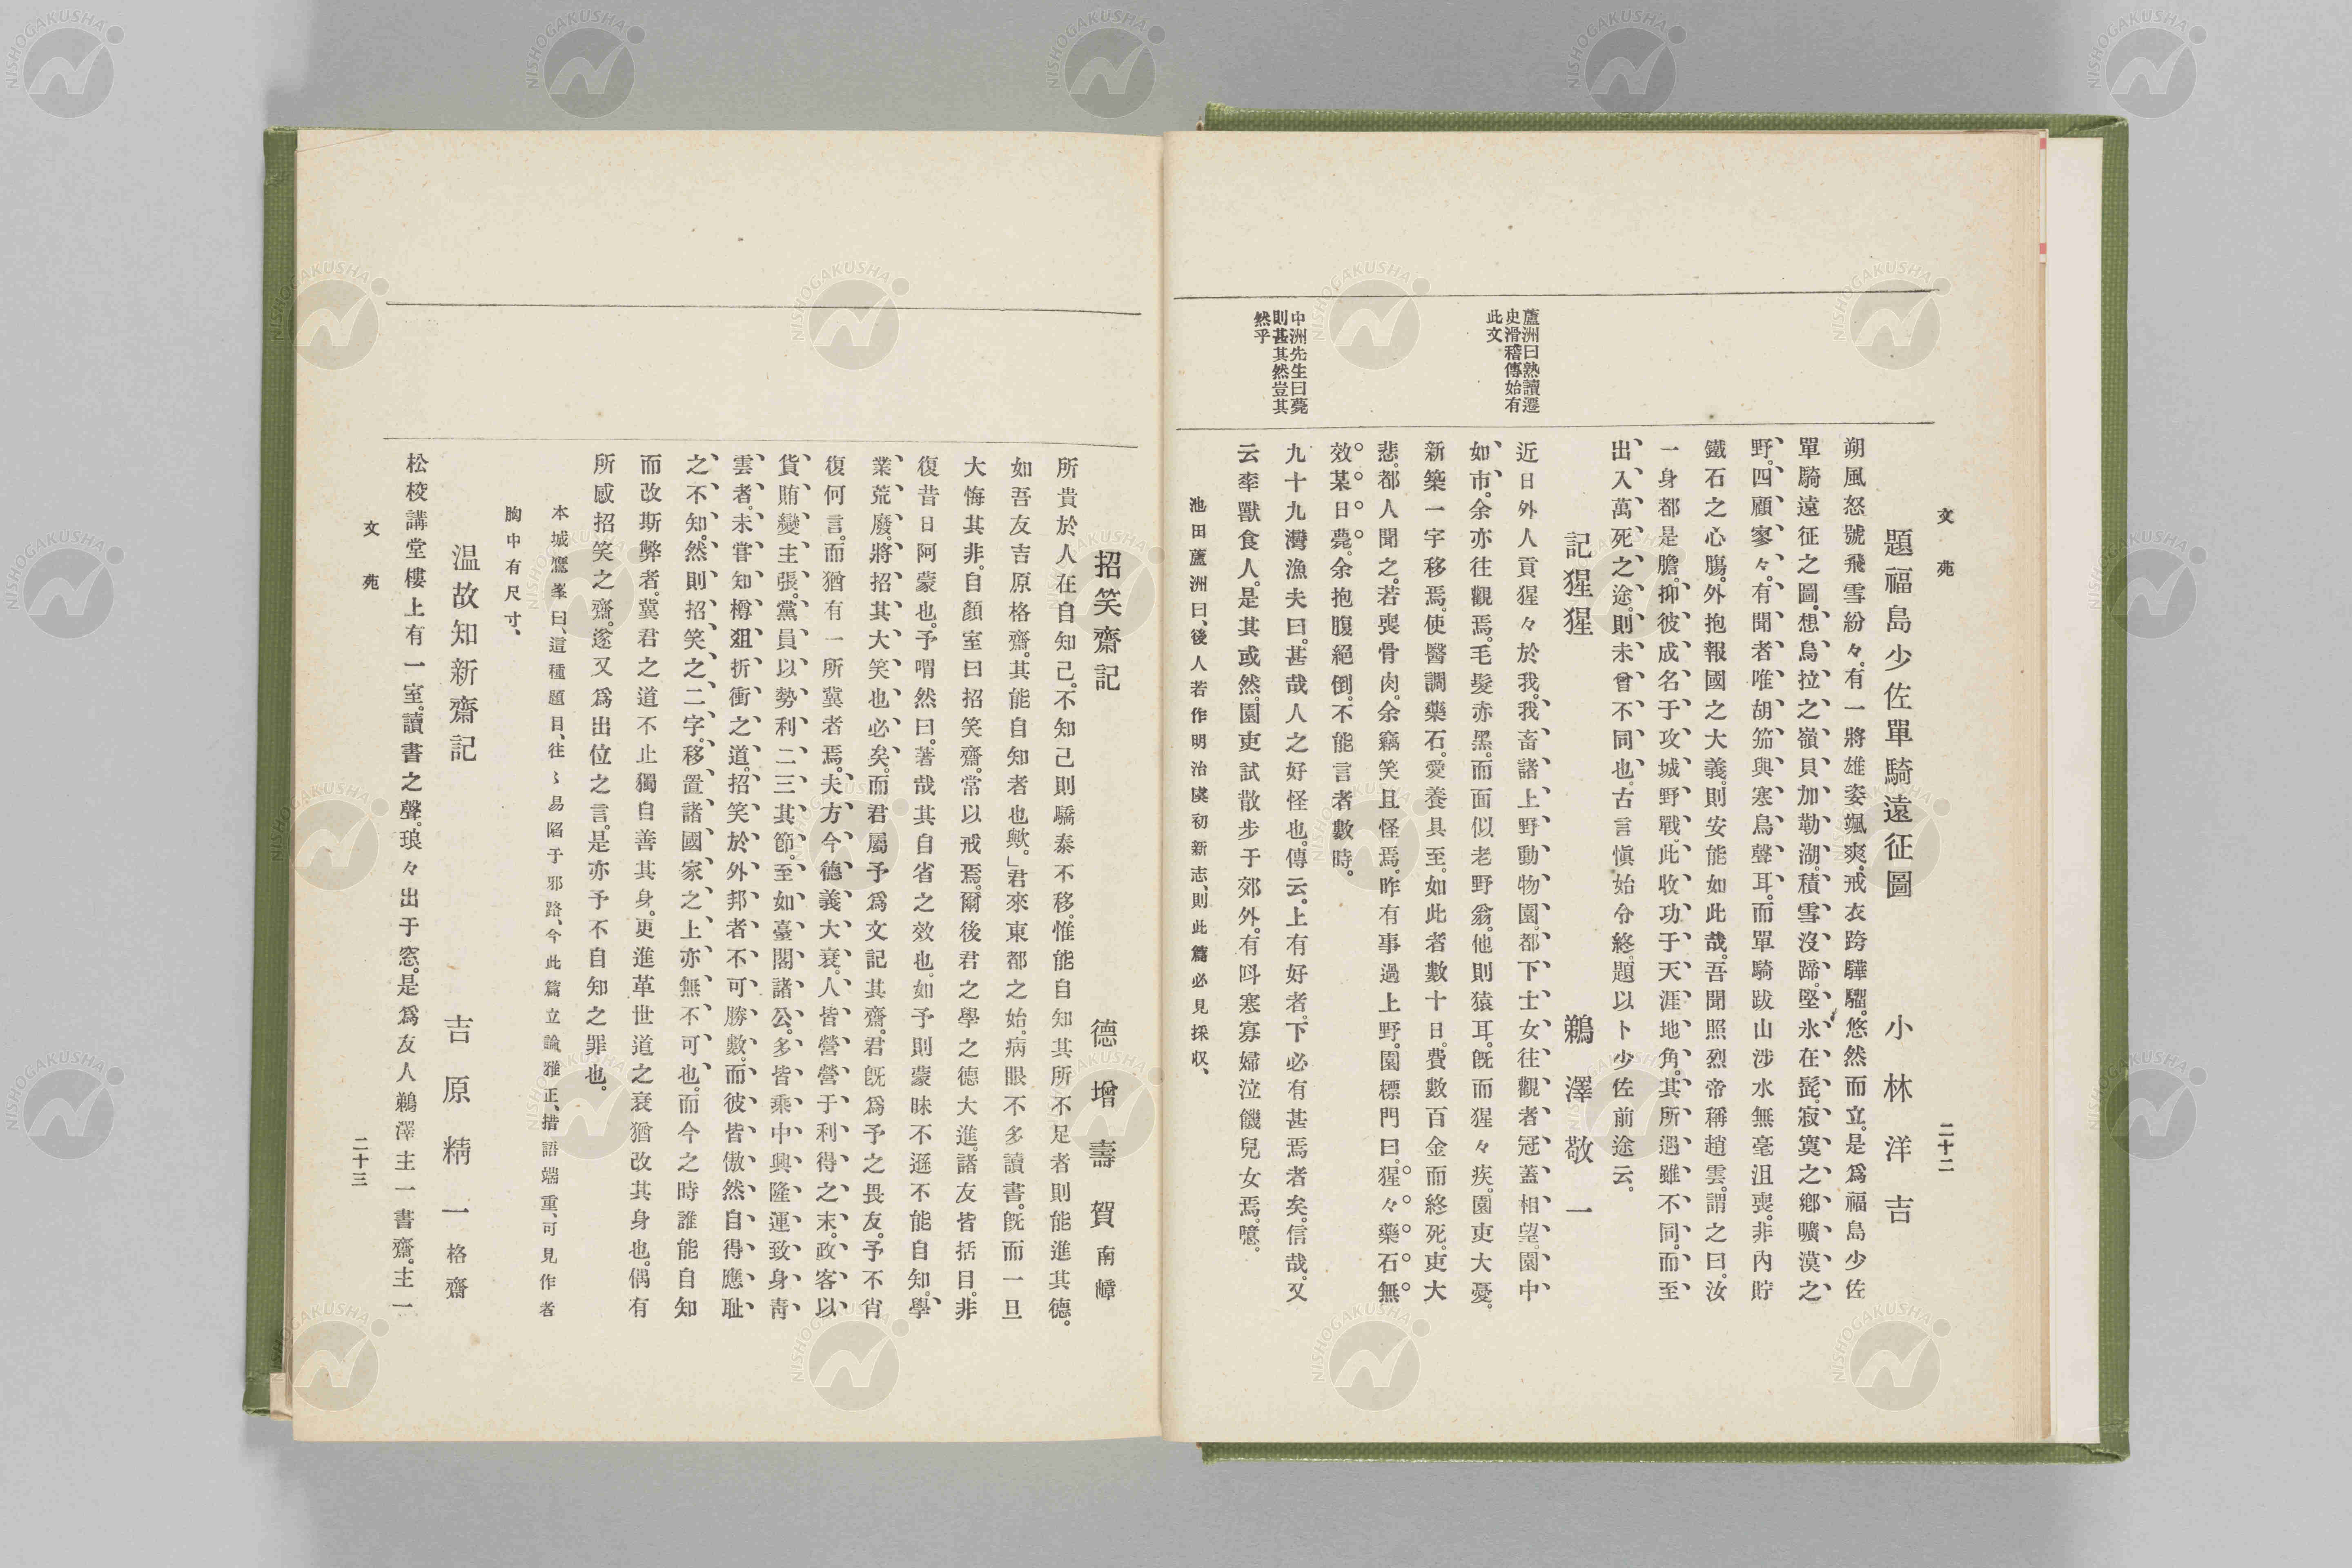 文苑
二十二
題福島少佐單騎遠征圖
小林洋吉
朔風怒號飛雪紛々。有一將雄姿颯爽。戒衣跨驊騮。悠然而立。是爲福島少佐
單騎遠征之圖。想烏拉之嶺貝加勒湖。積雪沒蹄。堅氷在髭。寂寞之鄕曠漠之
野。四顧寥々。有聞者唯胡笳與寒鳥聲耳。而單騎跋山涉水無毫沮喪。非內貯
鐵石之心膓。外抱報國之大義。則安能如此哉。吾聞照烈帝稱趙雲。謂之曰。汝
一身都是膽。抑彼成名于攻城野戰。此收功于天涯地角。其所遇雖不同。而至
出入萬死之途。則未曾不同也。古言愼始令終。題以卜少佐前途云。
記猩猩
鵜澤敬一
近日外人貢猩々於我。我畜諸上野動物園。都下士女往觀者冠蓋相望。園中
如市。余亦往觀焉。毛髮赤黑。而面似老野翁。他則猿耳。旣而猩々疾。園吏大憂。
新築一宇移焉。使醫調藥石。愛養具至。如此者數十日。費數百金而終死。吏大
悲。都人聞之。若喪骨肉。余竊笑且怪焉。昨有事過上野。園標門曰。猩々藥石無
效。某日薨。余抱腹絕倒。不能言者數時。
九十九灣漁夫曰。甚哉人之好怪也。傳云。上有好者。下必有甚焉者矣。信哉。又
云率獸食人。是其或然。園吏試散步于郊外。有呌寒寡婦泣饑兒女焉。噫。
池田蘆洲曰、後人若作明治虞初新志、則此篇必見採収、
蘆洲曰熟讀遷
史滑稽傳始有
此文
中洲先生曰薨
則甚其然豈其
然乎
招笑齋記
德增壽賀南嶂
所貴於人在自知己。不知己則驕泰不移。惟能自知其所不足者則能進其德。
如吾友吉原格齋。其能自知者也歟。」君來東都之始。病眼不多讀書。旣而一旦
大悔其非。自顏室曰招笑齋。常以戒焉。爾後君之學之德大進。諸友皆括目。非
復昔日阿蒙也。予喟然曰。著哉其自省之效也。如予則蒙昧不遜不能自知。學
業荒廢。將招其大笑也必矣。而君屬予爲文記其齋。君旣爲予之畏友。予不肖
復何言。而猶有一所冀者焉。夫方今德義大衰。人皆營營于利得之末。政客以
貨賄變主張。黨員以勢利二三其節。至如臺閣諸公。多皆乘中興隆運致身靑
雲者。未甞知樽俎折衝之道。招笑於外邦者不可勝數。而彼皆傲然自得應耻
之不知。然則招笑之二字。移置諸國家之上亦無不可也。而今之時誰能自知
而改斯弊者。冀君之道不止獨自善其身。更進革世道之衰猶改其身也。偶有
所感招笑之齋。遂又爲出位之言。是亦予不自知之罪也。
本城鷹峯曰、這種題目、往〻易陷于邪路、今此篇立論雅正、措語端重、可見作者
胸中有尺寸、
温故知新齋記
吉原精一格齋
松桜講堂樓上有一室。讀書之聲。琅々出于窓。是爲友人鵜澤主一書齋。主一
文苑
二十三